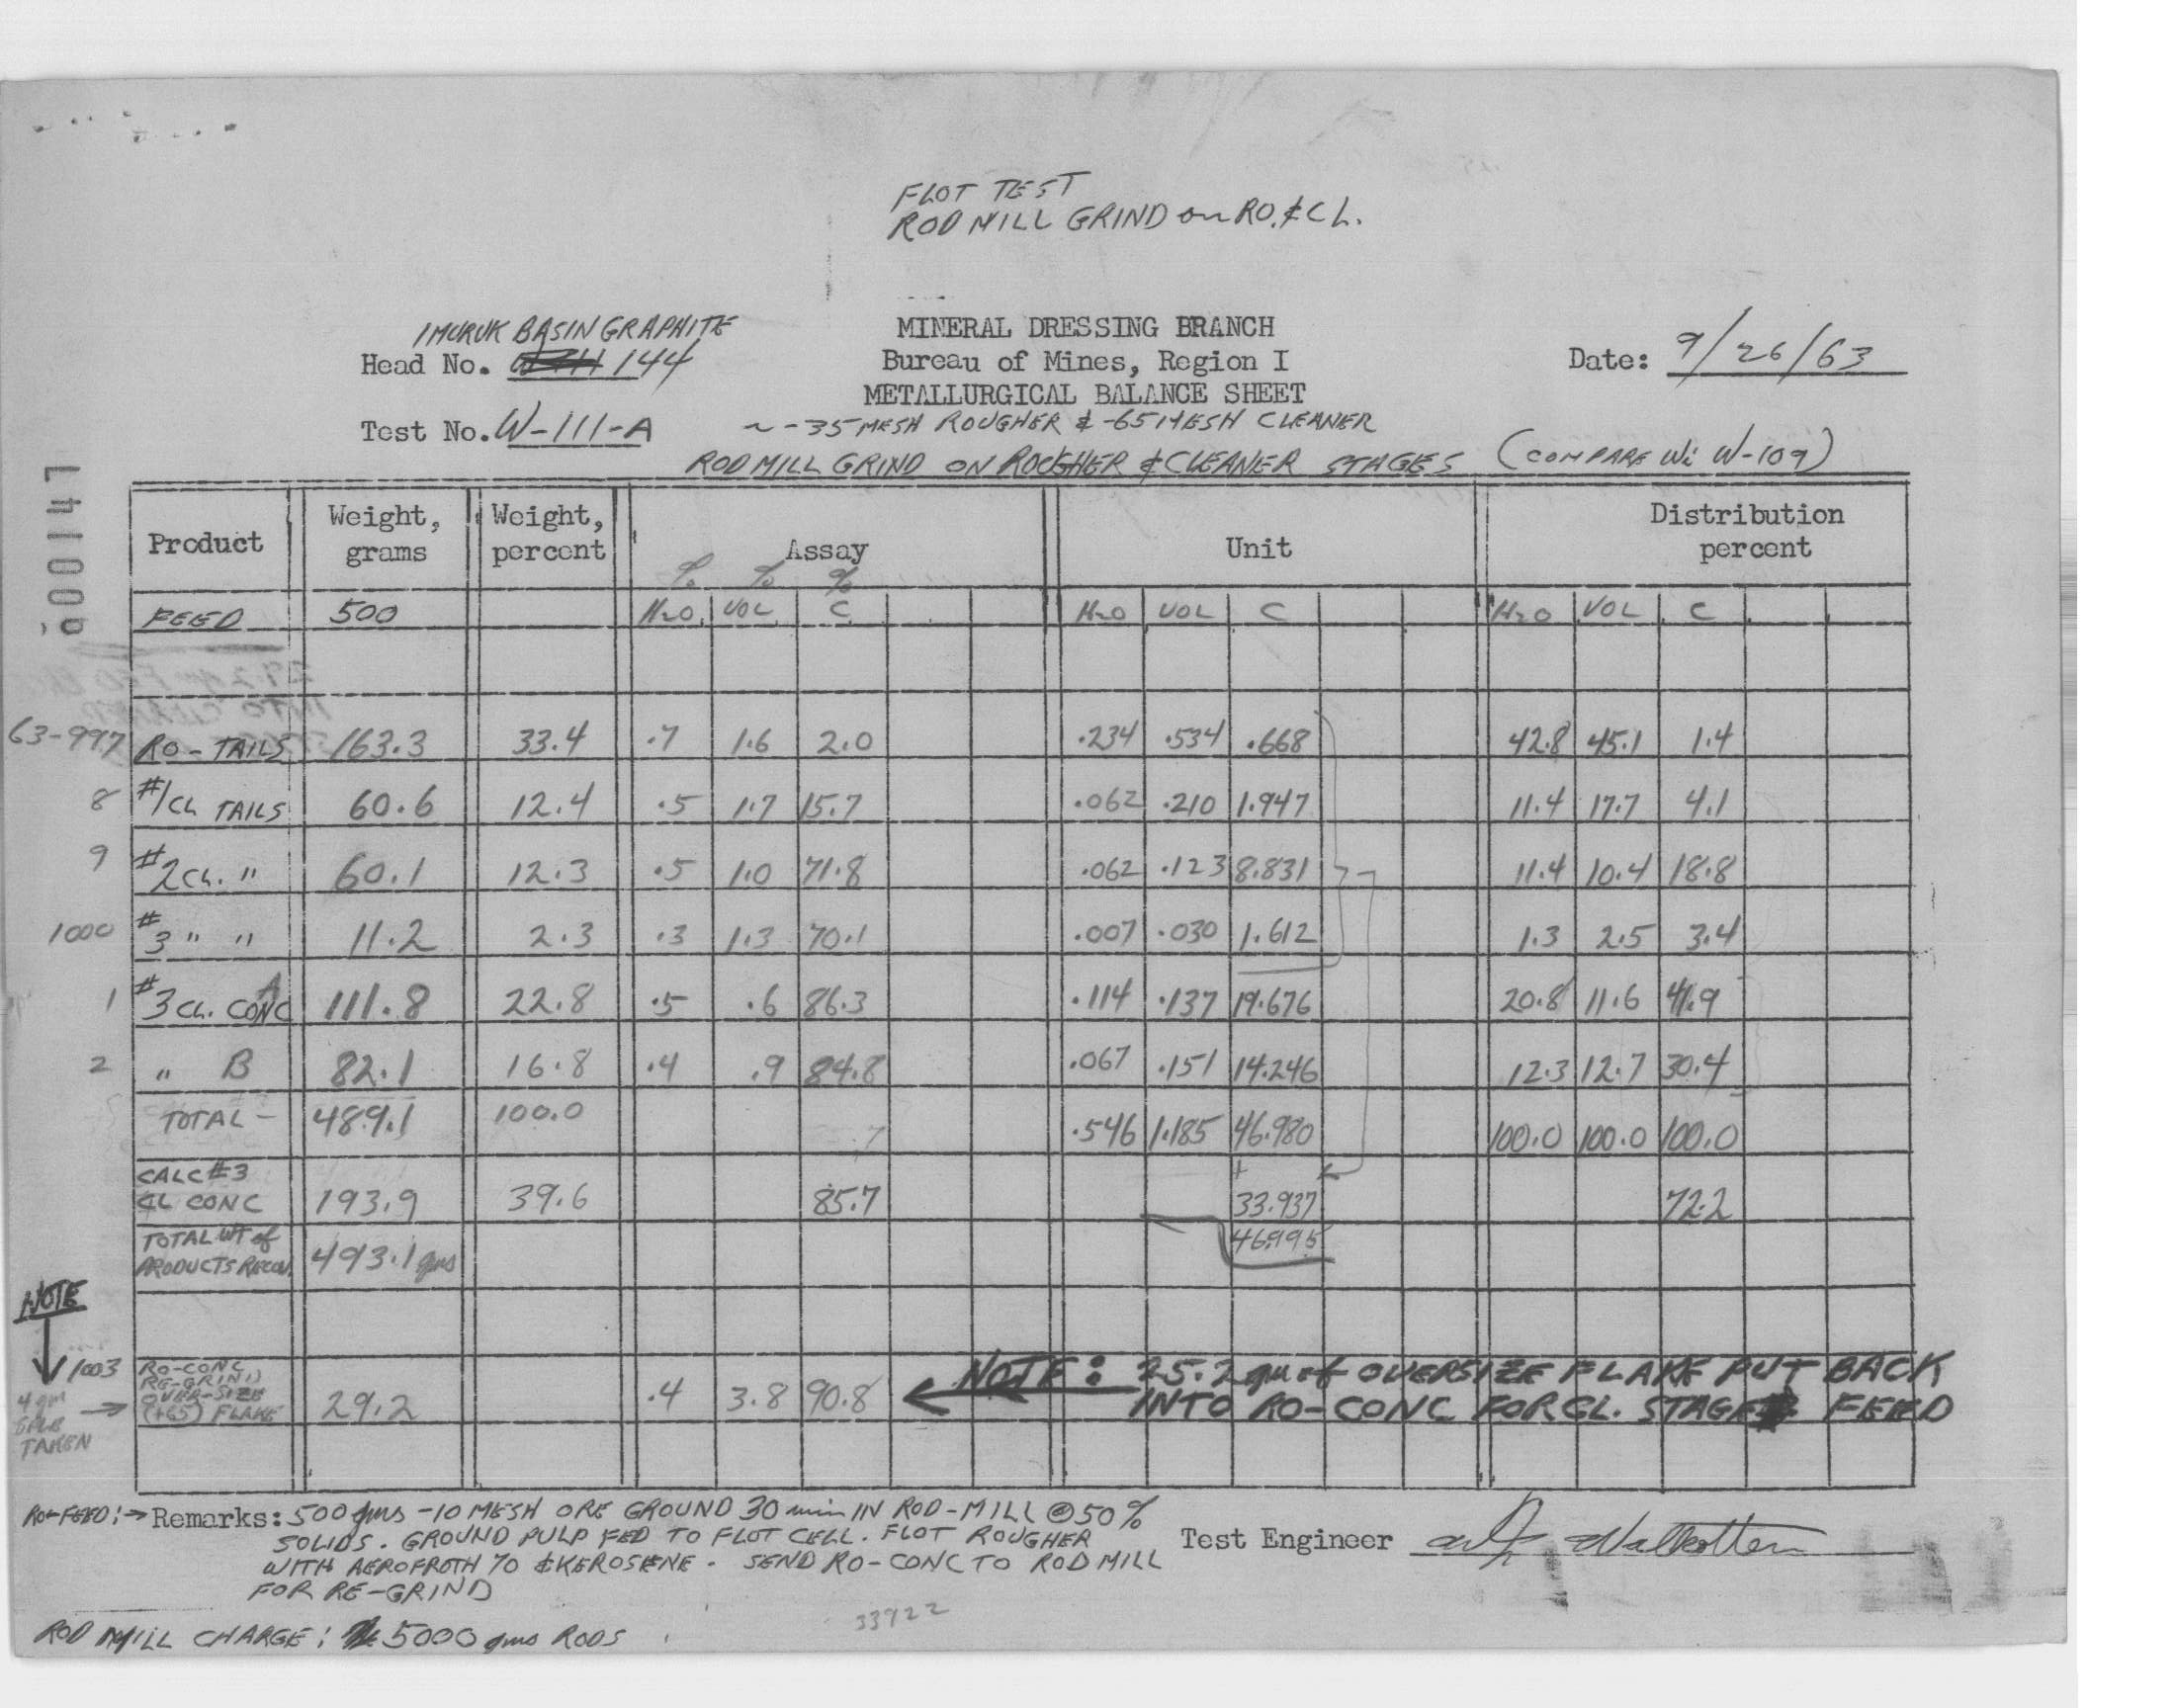 FLOT TEST
ROD MILL GRIND on RO. & CL.
IMURUK BASIN GRAPHITE
MINERAL DRESSING BRANCH
Head No. 144
Bureau of Mines, Region I
Date: 9/26/63
METALLURGICAL BALANCE SHEET
Test No. W-111-A
~ -35 MESH ROUGHER & -65 MESH CLEANER
ROD MILL GRIND ON ROUGHER & CLEANER STAGES (COMPARE Wi W-109)
L41009
Product Weight, grams Weight, percent Assay Unit Distribution percent
% % %
FEED 500 H2O VOL C H2O VOL C H2O VOL C
63-997 RO-TAILS 163.3 33.4 .7 1.6 2.0 .234 .534 .668 42.8 45.1 1.4
8 #1 CL TAILS 60.6 12.4 .5 1.7 15.7 .062 .210 1.947 11.4 17.7 4.1
9 #2 CL. " 60.1 12.3 .5 1.0 71.8 .062 .123 8.831 11.4 10.4 18.8
1000 #3 " " 11.2 2.3 .3 1.3 70.1 .007 .030 1.612 1.3 2.5 3.4
1 #3 CL. CONC A 111.8 22.8 .5 .6 86.3 .114 .137 19.676 20.8 11.6 41.9
2 " B 82.1 16.8 .4 .9 84.8 .067 .151 14.246 12.3 12.7 30.4
TOTAL - 489.1 100.0 .546 1.185 46.980 100.0 100.0 100.0
CALC #3
CL CONC 193.9 39.6 85.7 33.937 72.2
TOTAL WT of
PRODUCTS RECOV. 493.1 gms 46.995
NOTE
1003 RO-CONC
RE-GRIND
OVER-SIZE
(+65) FLAKE 29.2 .4 3.8 90.8
4 gm
SPLE
TAKEN
NOTE: 25.2 gm of OVERSIZE FLAKE PUT BACK
INTO RO-CONC FOR CL. STAGE FEED
RO-FEED: → Remarks: 500 gms -10 MESH ORE GROUND 30 min IN ROD-MILL @ 50%
SOLIDS. GROUND PULP FED TO FLOT CELL. FLOT ROUGHER
WITH AEROFROTH 70 & KEROSENE. SEND RO-CONC TO ROD MILL
FOR RE-GRIND
Test Engineer
ROD MILL CHARGE: 5000 gms RODS
33922